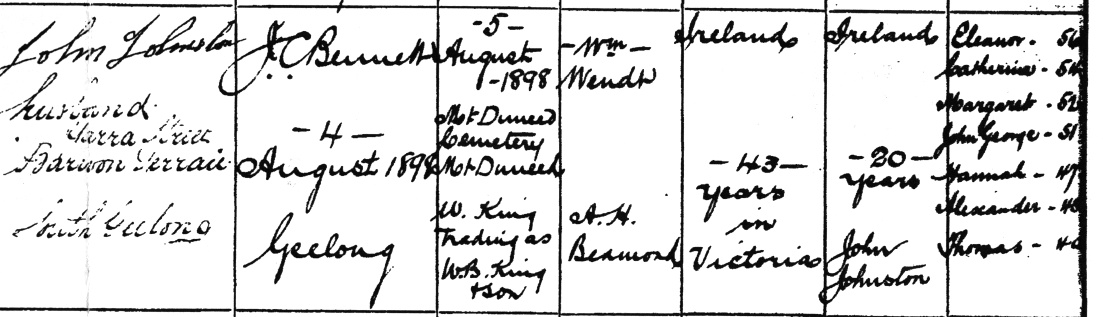 John Johnston
husband
Yarra Street
Barwon Terrace
South Geelong
J. C. Bennett
- 4 -
August 1898
Geelong
- 5 -
August
- 1898
Mot Duneed
Cemetery
Mot Duneed
W. King
Trading as
W. B. King
+ Son
- Wm -
Wendt
A. H.
Beamond
Ireland
- 43 -
years
in
Victoria
Ireland
- 20 -
years
John
Johnston
Eleanor - 56
Catherine - 54
Margaret - 52
John George - 51
Hannah - 47
Alexander -
Thomas -